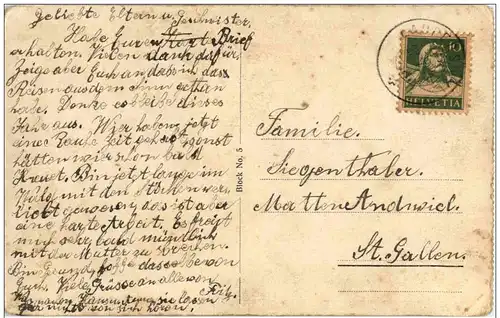 Geliebte Eltern u. Geschwister.
Habe Euren Brief
erhalten. Vielen dank dafür,
Zeige aber Euch an dass ich das
Reisen aus dem sinn gethan
habe. Denke ich bleibe dieses
Jahr aus. Wier haben jetzt
eine Rauhe Zeit gehabt sonst
hätten wier schon bald
Kraut. Bin jetzt lange im
Wald mit den Stöcken
gewesen, das ist aber
eine harte Arbeit. Es freigt
mich sehr bald mündlich
mit der Mutter zu sprechen.
Bin Gesund, hoffe dasselbe von
Euch. Viele Grüsse an alle von
Fritz.
von sich hören.
Block No. 5
10
HELVETIA
Familie.
Siegenthaler.
Matten Andwiel.
St. Gallen.